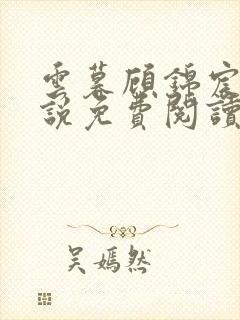 雲暮顧錦宸
説免費閱讀
吳嫣然